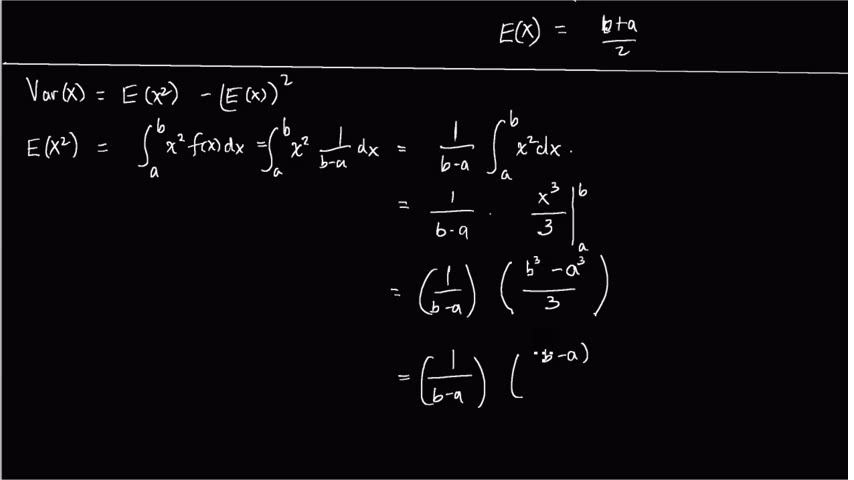 E(X) = \frac{b+a}{2}
Var(x) = E(x²) - (E(x))²
E(X²) = ∫_a^b x² f(x) dx = ∫_a^b x² \frac{1}{b-a} dx = \frac{1}{b-a} ∫_a^b x² dx.
= \frac{1}{b-a} · \frac{x³}{3} |_a^b
= (\frac{1}{b-a}) (\frac{b³-a³}{3})
= (\frac{1}{b-a}) ( b-a)